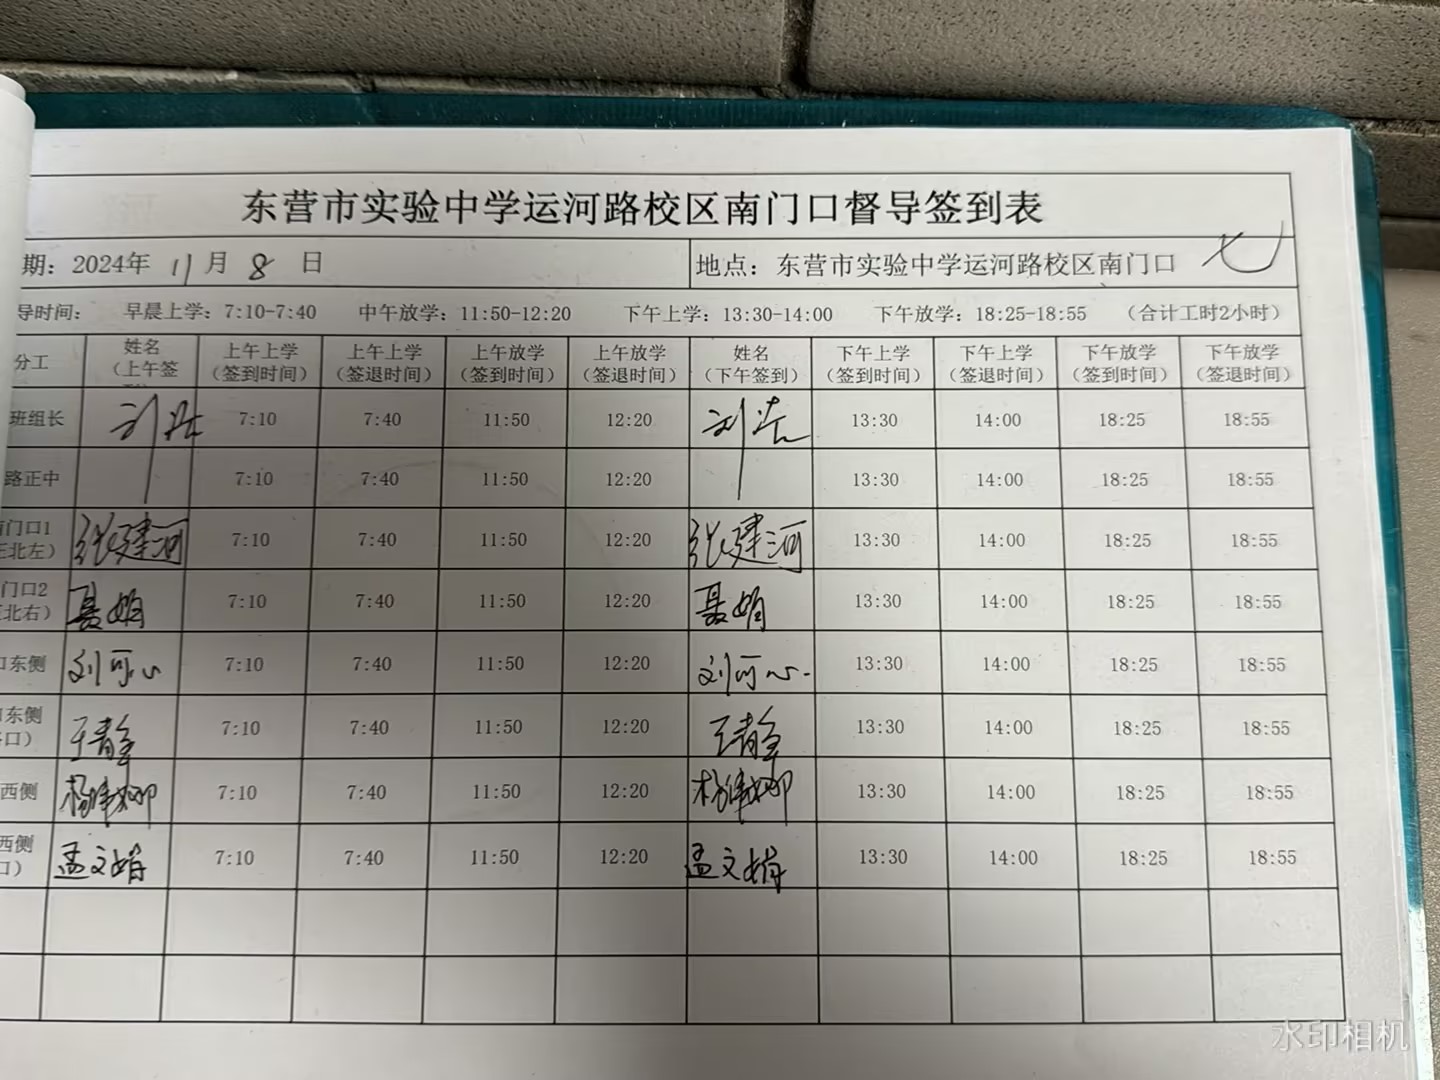 东营市实验中学运河路校区南门口督导签到表
期：2024年 11 月 8 日 地点：东营市实验中学运河路校区南门口 七
导时间： 早晨上学：7:10-7:40 中午放学：11:50-12:20 下午上学：13:30-14:00 下午放学：18:25-18:55 （合计工时2小时）
分工 姓名（上午签 上午上学（签到时间） 上午上学（签退时间） 上午放学（签到时间） 上午放学（签退时间） 姓名（下午签到） 下午上学（签到时间） 下午上学（签退时间） 下午放学（签到时间） 下午放学（签退时间）
班组长 刘 7:10 7:40 11:50 12:20 刘 13:30 14:00 18:25 18:55
路正中 7:10 7:40 11:50 12:20 13:30 14:00 18:25 18:55
门口1 北左） 张建河 7:10 7:40 11:50 12:20 张建河 13:30 14:00 18:25 18:55
门口2 北右） 聂娟 7:10 7:40 11:50 12:20 聂娟 13:30 14:00 18:25 18:55
口东侧 刘可心 7:10 7:40 11:50 12:20 刘可心 13:30 14:00 18:25 18:55
东侧 口） 王静 7:10 7:40 11:50 12:20 王静 13:30 14:00 18:25 18:55
西侧 杨 娜 7:10 7:40 11:50 12:20 杨 娜 13:30 14:00 18:25 18:55
西侧 口） 孟文娟 7:10 7:40 11:50 12:20 孟文娟 13:30 14:00 18:25 18:55
水印相机